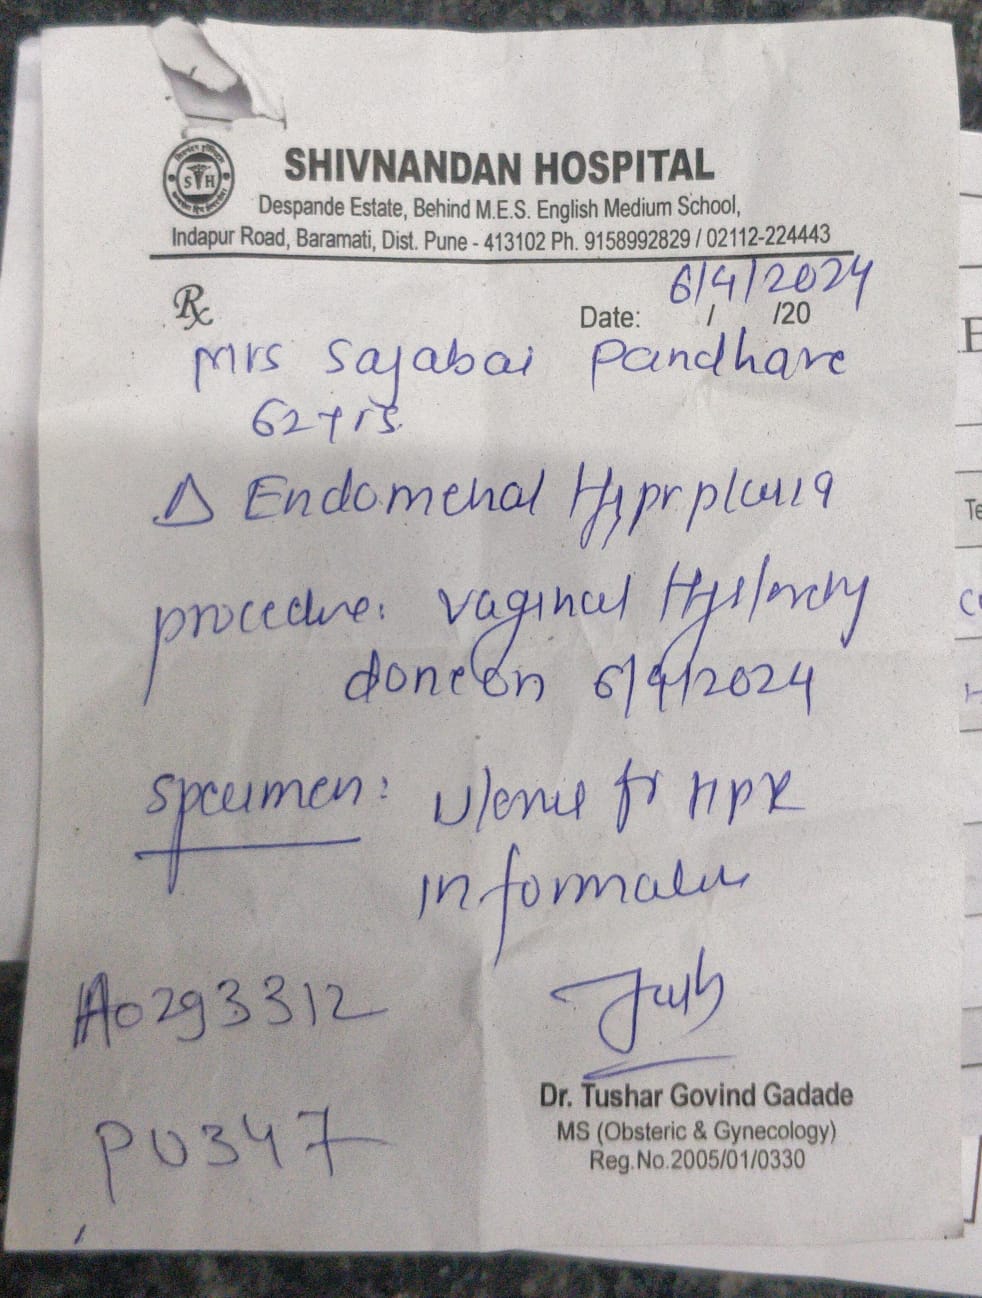 SHIVNANDAN HOSPITAL
Despande Estate, Behind M.E.S. English Medium School,
Indapur Road, Baramati, Dist. Pune - 413102 Ph. 9158992829 / 02112-224443
Rx
Date: 6/4/2024 / /20
Mrs Sajabai Pandhare
62 yrs.
Δ Endometrial Hyprplasia
procedure: vaginal
done on 6/4/2024
specimen: for HPR
in formalin
A0293312
PU347
Dr. Tushar Govind Gadade
MS (Obsteric & Gynecology)
Reg.No.2005/01/0330